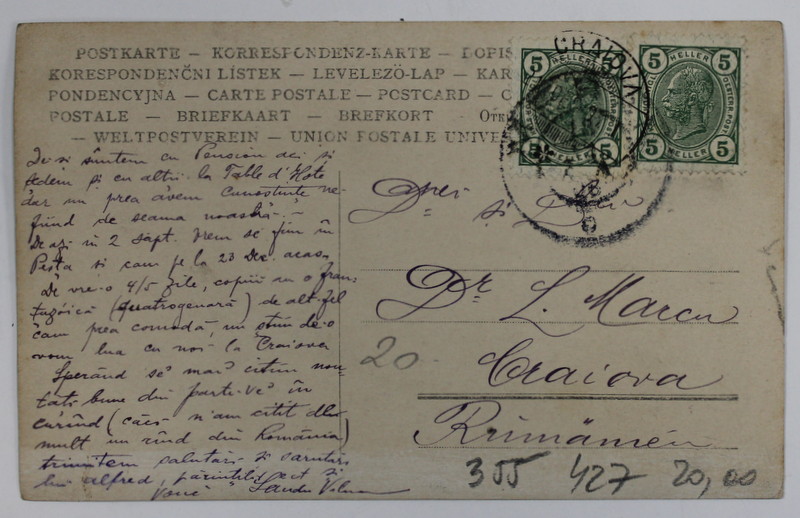 POSTKARTE – KORRESPONDENZ-KARTE – DOPIS
KORESPONDENČNI LÍSTEK – LEVELEZÖ-LAP – KAR
PONDENCYJNA – CARTE POSTALE – POSTCARD – C
POSTALE – BRIEFKAART – BREFKORT – Отк
– WELTPOSTVEREIN – UNION POSTALE UNIVER
CRAIOVA
5 HELLER 5
5 HELLER 5
5 HELLER 5
5 HELLER 5
De si sûntem cu Pension aci și
ședem și cu alții la Table d'Hote
dar nu prea avem cunostinte ne
fiind de seama noastră.–
De azi in 2 sapt. vrem se fim în
Pesta si cam pe la 23 Dec. acasa
De vre-o 4/5 zile, copiii au o fran-
tuzóică (quatrogenară) de alt-fel
cam prea comodă, nu stim de-o
vom lua cu noi la Craiova
Sperând se mai citim nou-
tati bune din parte-Ve în
cúrînd (căci n'am citit de
mult un rînd din România)
trimitem salutari si sarutari
lui Alfred, părinților ect si
Voue
D-nei și D-lui
Dr. L. Marcu
Craiova
Rumänien
20
355 427 20,00